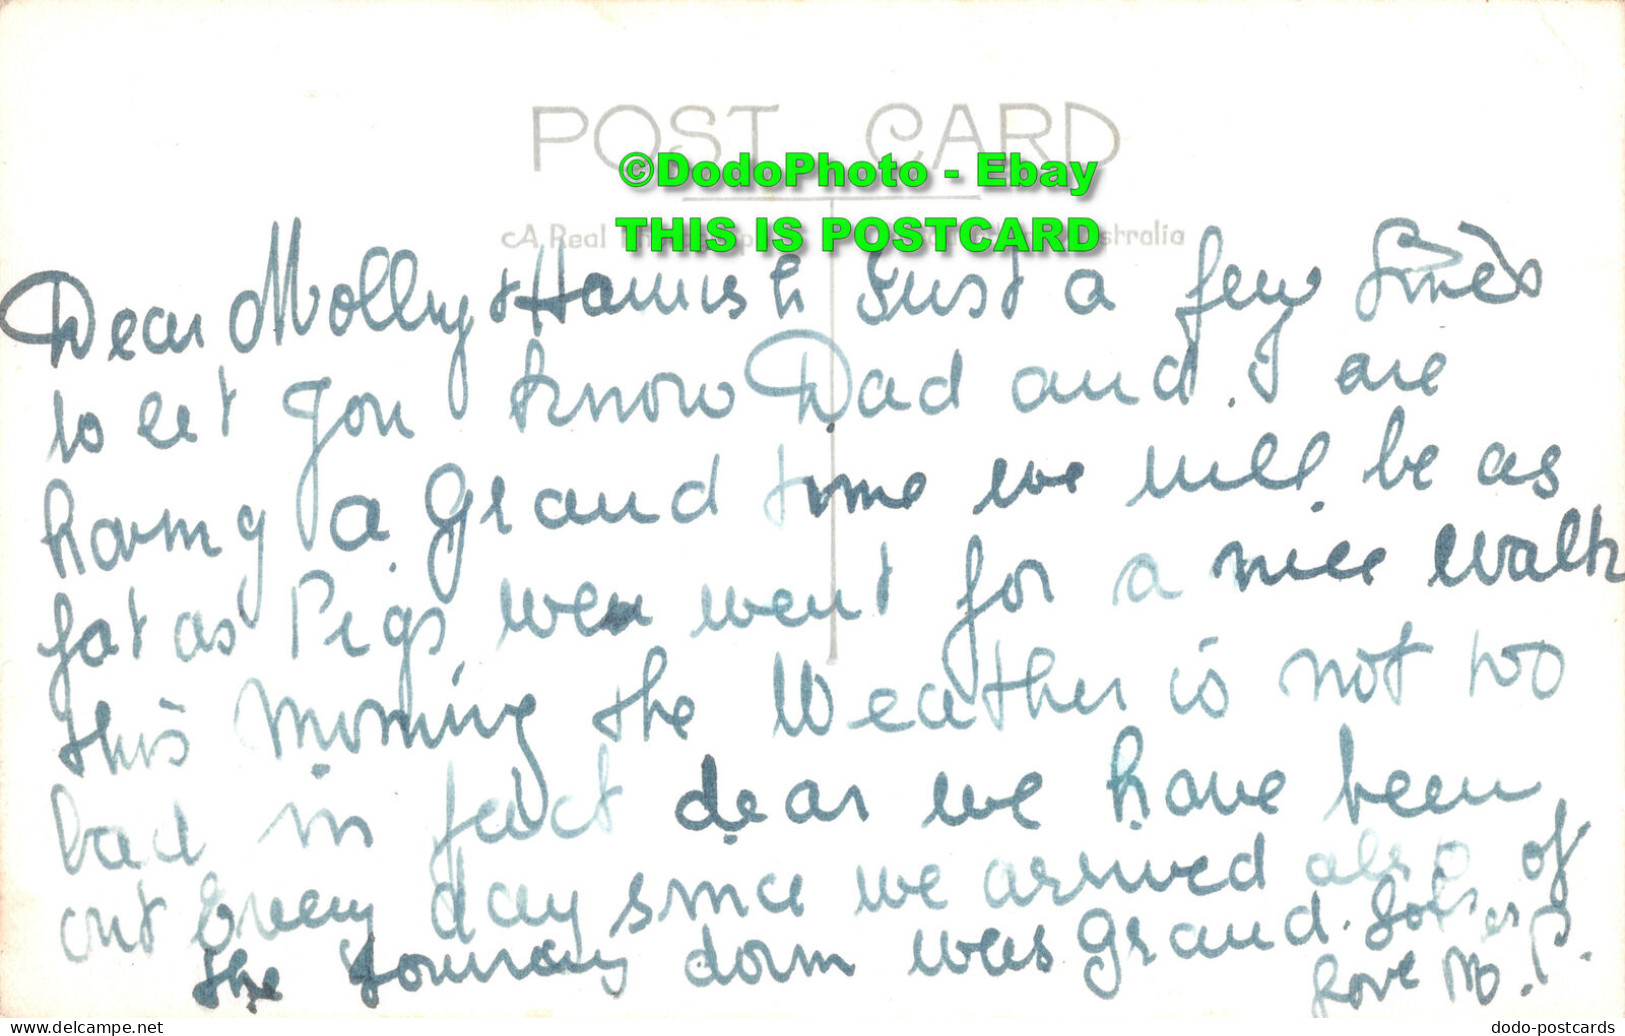 POST CARD
©DodoPhoto - Ebay
A Real
stralia
THIS IS POSTCARD
Dear Molly & Hamish Just a few Lines
to let you know Dad and. I are
having a grand time we will be as
fat as Pigs we went for a nice walk
this morning the Weather is not too
bad in fact dear we have been
out Every day since we arrived also
the Journay down was grand. Lots of
love M. P.
dodo-postcards